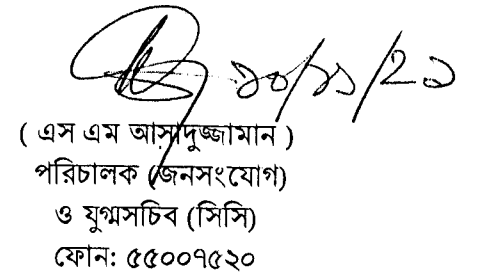 ১০/১১/২১
( এস এম আসাদুজ্জামান )
পরিচালক (জনসংযোগ)
ও যুগ্মসচিব (সিসি)
ফোন: ৫৫০০৭৫২০